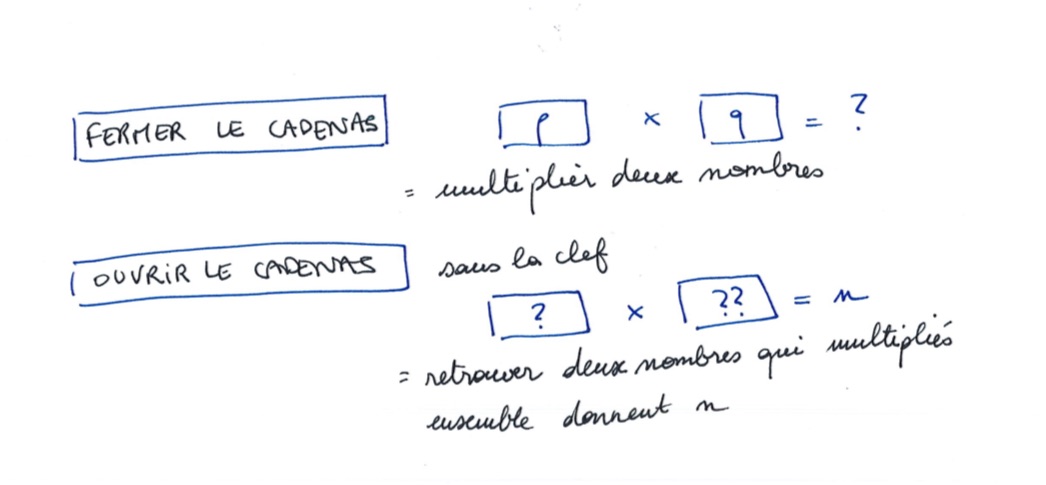 FERMER LE CADENAS p × q = ?
= multiplier deux nombres
OUVRIR LE CADENAS sans la clef
? × ?? = n
= retrouver deux nombres qui multipliés
ensemble donnent n